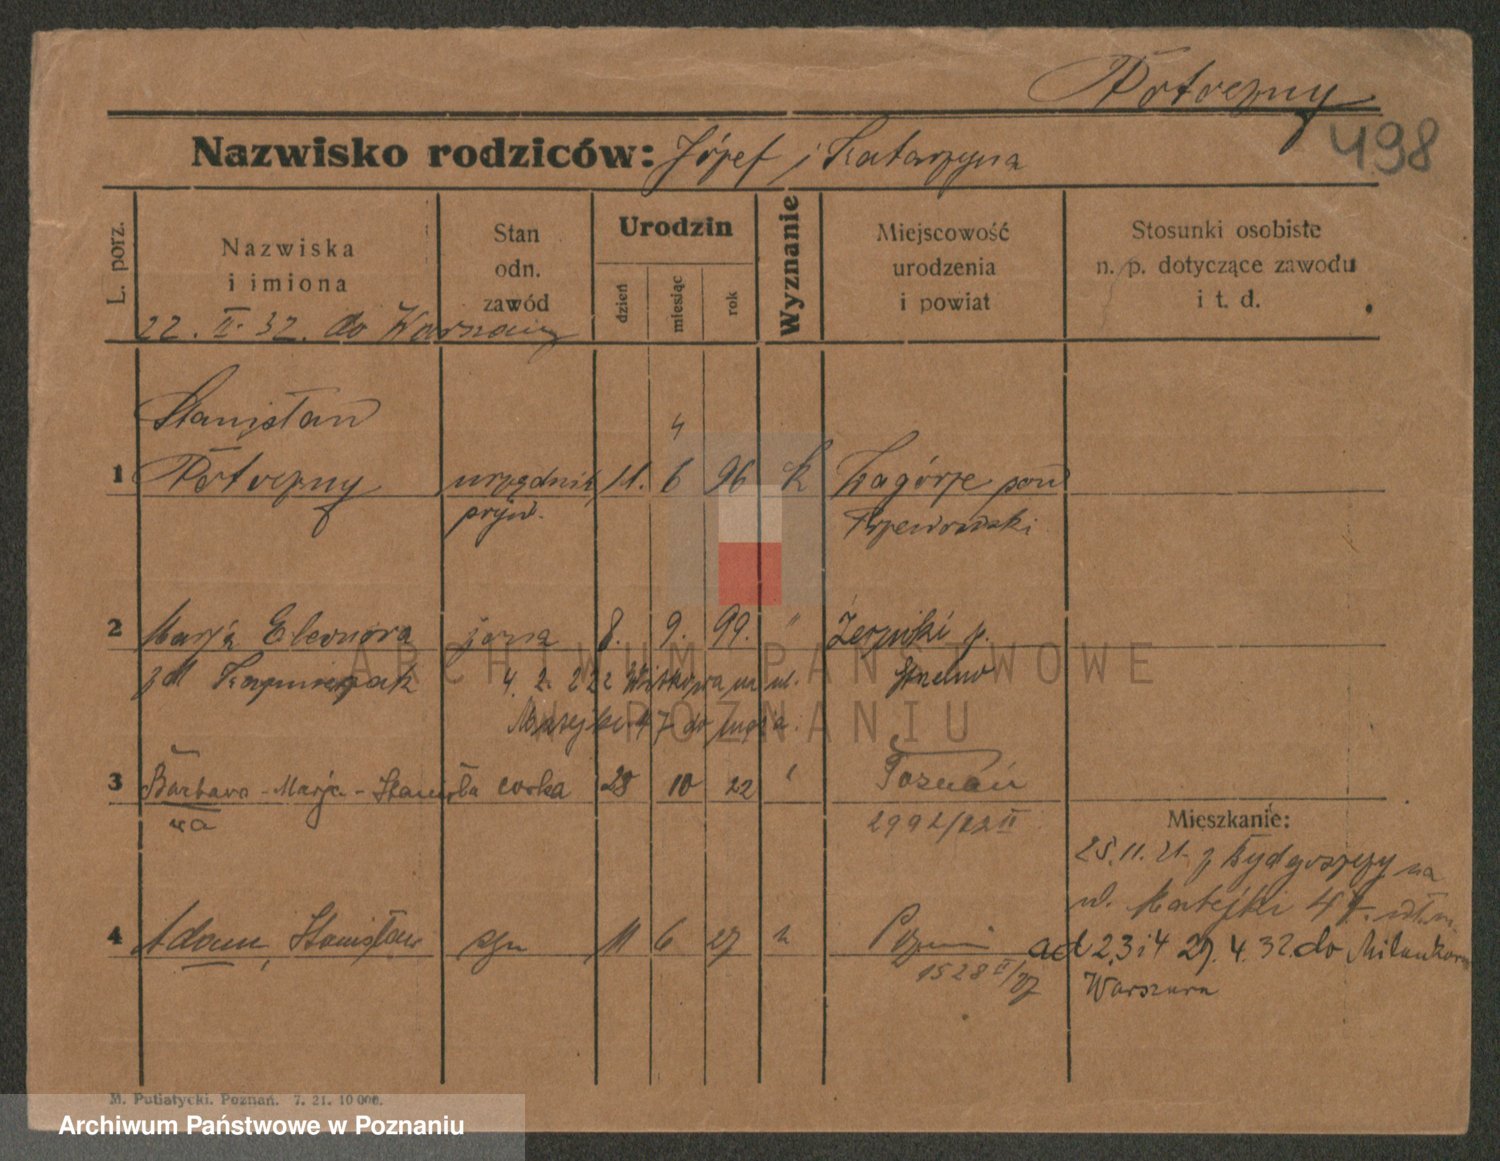 Potoczny
498
Nazwisko rodziców: Józef i Katarzyna
L. porz.
Nazwiska
i imiona
Stan
odn.
zawód
Urodzin
dzień
miesiąc
rok
Wyznanie
Miejscowość
urodzenia
i powiat
Stosunki osobiste
n. p. dotyczące zawodu
i t. d.
22. II. 32. do Warszawy
Stanisław
4
1 Potoczny urzędnik 11. 6 96 k Zagórze pow
pryw. Przeworski
2 Marja Eleonora żona 8. 9. 99. " Żerniki p.
zd Kaźmierczak 4. 2. 22 z Witkowa na ul. Strzelno
Matejki 47 do męża.
3 Barbara - Marja - Stanisła córka 28 10 22 Poznań
wa 2992/22 II
Mieszkanie:
25. 11. 21. z Bydgoszczy na
ul. Matejki 47.
4 Adam, Stanisław syn 11 6 27 k Poznań
1528 II/27
ad 2,3 i 4 29. 4. 32. do
Warszawa
M. Putiatycki. Poznań. 7. 21. 10 000.
ARCHIWUM PAŃSTWOWE
W POZNANIU
Archiwum Państwowe w Poznaniu